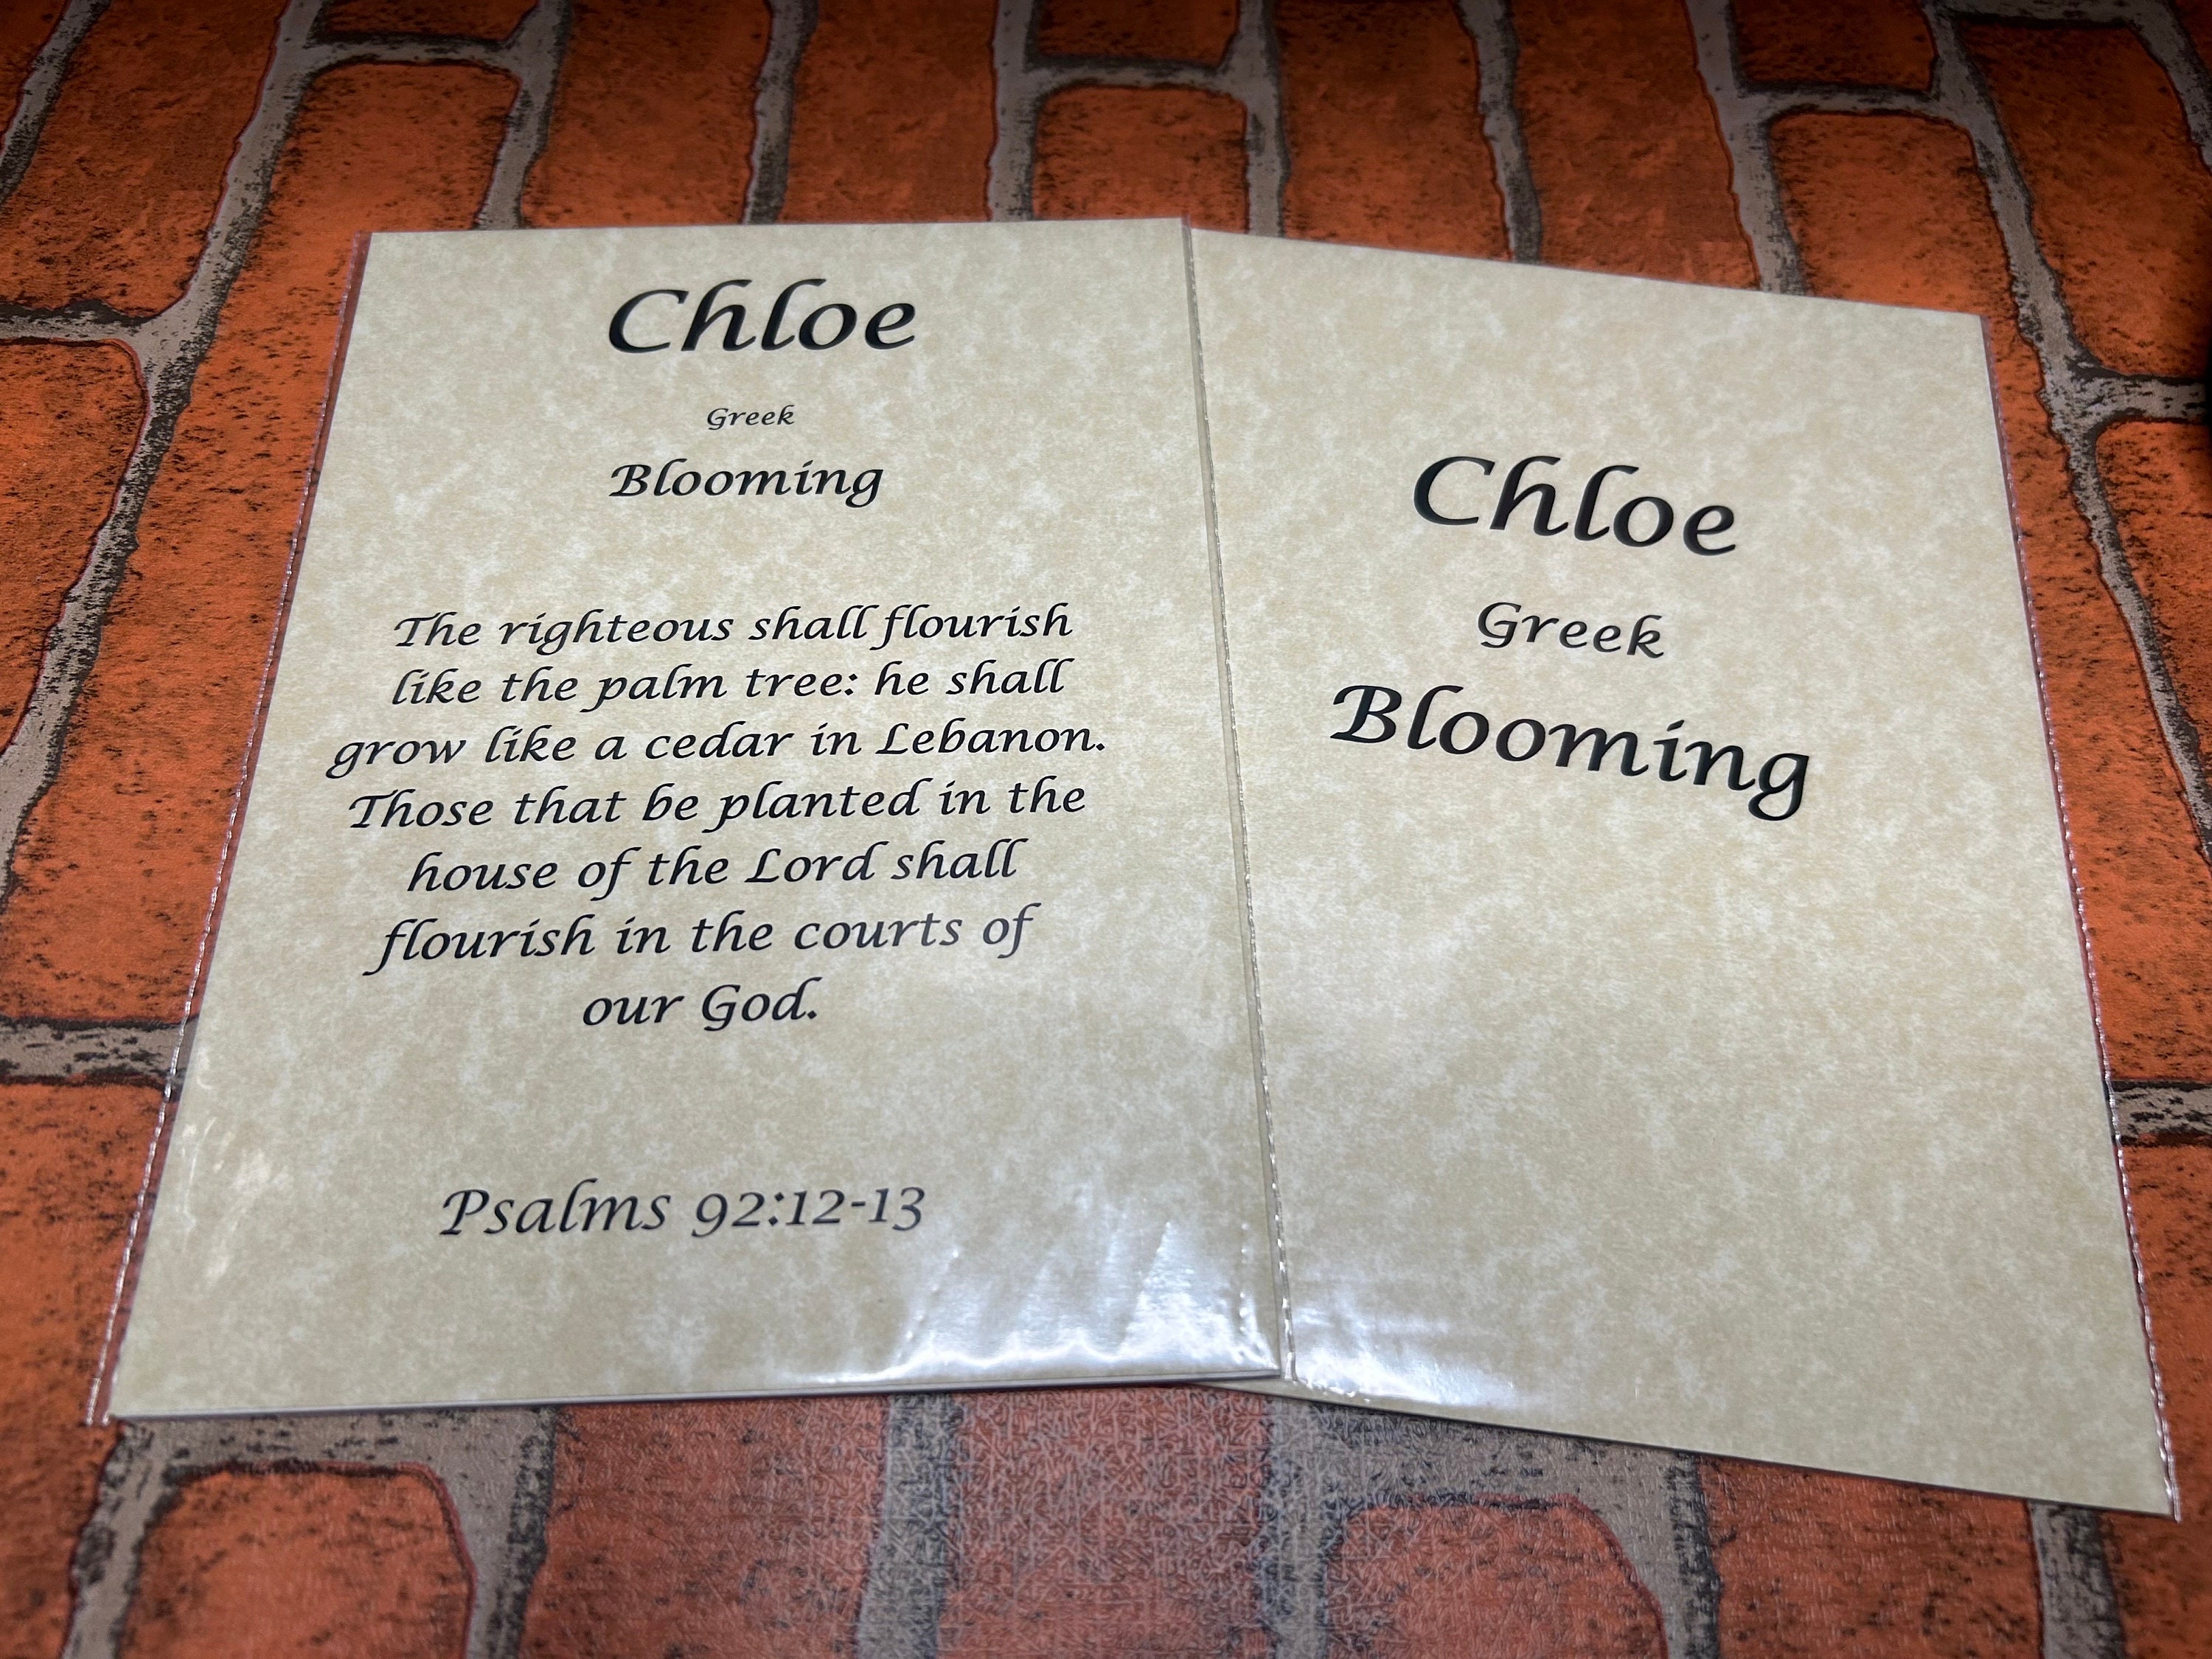 Chloe
Greek
Blooming
The righteous shall flourish
like the palm tree: he shall
grow like a cedar in Lebanon.
Those that be planted in the
house of the Lord shall
flourish in the courts of
our God.
Psalms 92:12-13
Chloe
Greek
Blooming